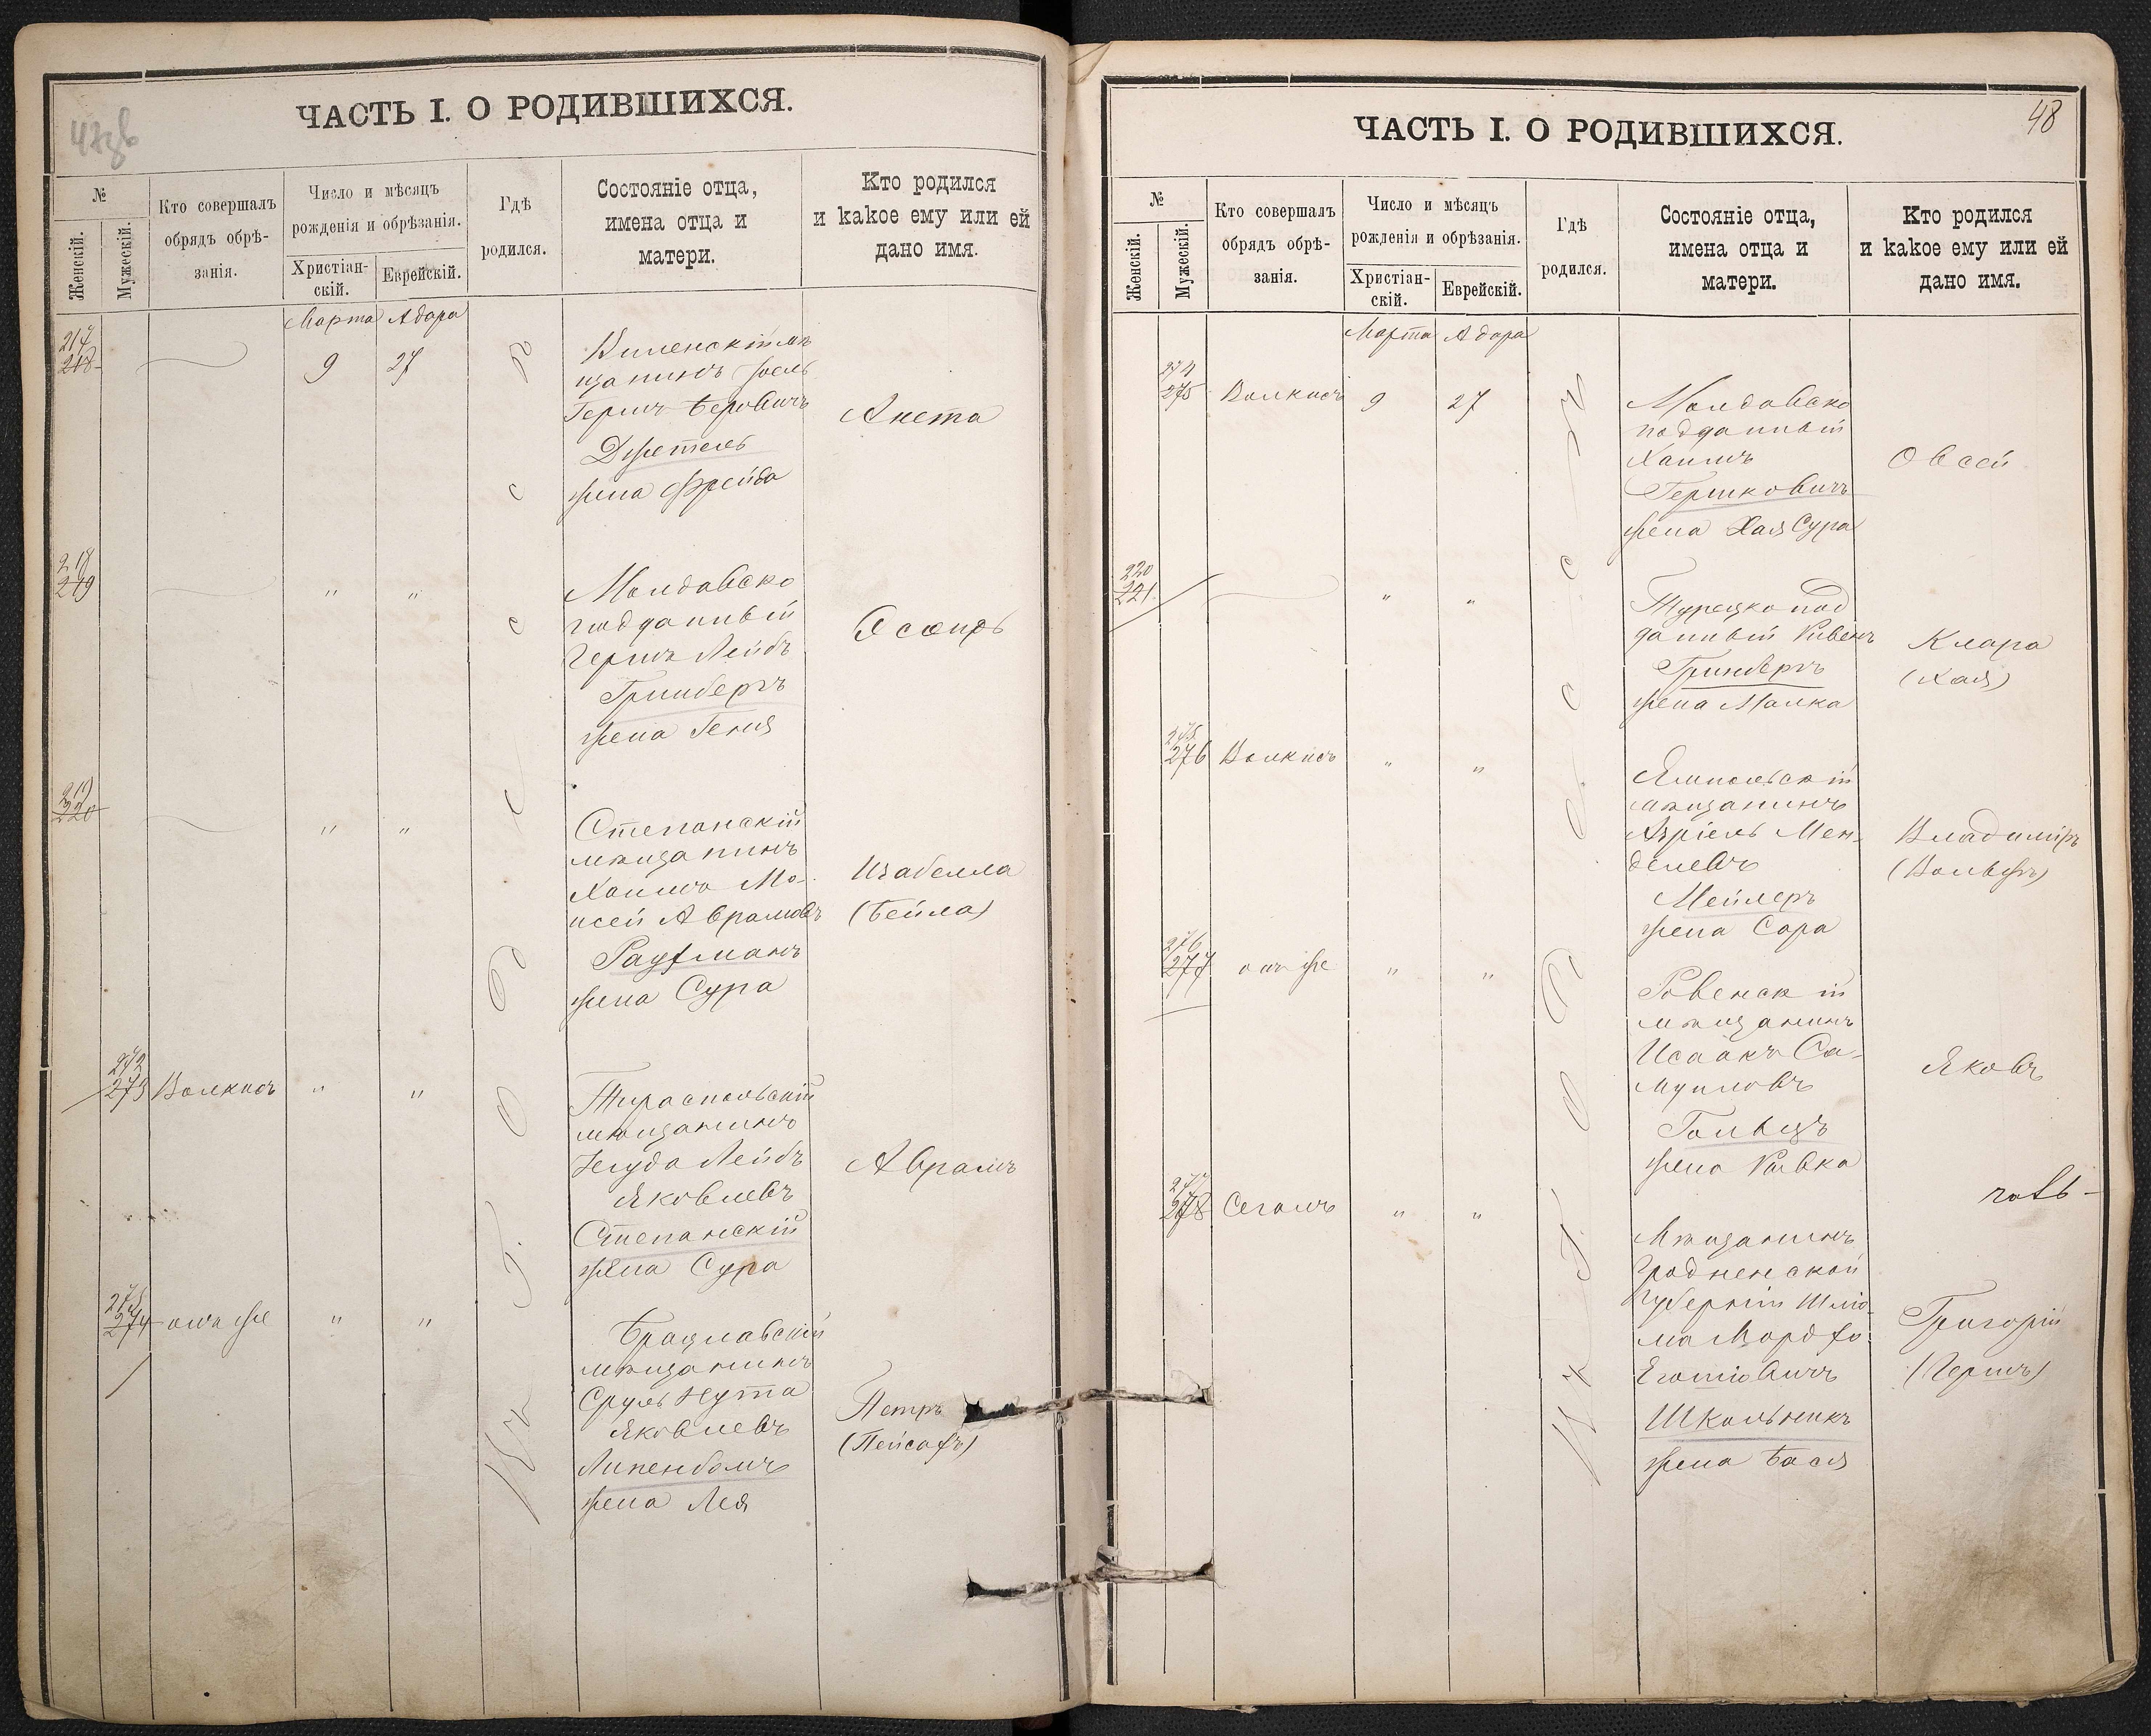 47об
ЧАСТЬ I. О РОДИВШИХСЯ.
№
Женскій.
Мужескій.
Кто совершалъ
обрядъ обрѣ-
занія.
Число и мѣсяцъ
рожденія и обрѣзанія.
Христіан-
скій.
Еврейскій.
Гдѣ
родился.
Состояніе отца,
имена отца и
матери.
Кто родился
и какое ему или ей
дано имя.
Марта Адара
217
218
9 27
Виленскій мѣ
щанинъ
Гершъ Беровичъ
жена Фрейда
Анета
218
219
" "
Молдавско
подданный
Гершъ Лейбъ
Гринбергъ
жена Геня
219
220
" "
Степанскій
мѣщанинъ
Хаимъ Мо-
исей Аврамовъ
Рауфманъ
жена Сура
Изабелла
(Бейла)
272
273 Волкисъ " "
Тираспольскій
мѣщанинъ
Іегуда Лейбъ
Яковлевъ
Степанскій
жена Сура
Аврамъ
273
274 онъ же " "
Брацлавскій
мѣщанинъ
Сруль Нута
Яковлевъ
Липенбомъ
жена Лея
Петръ
(Пейсахъ)
48
ЧАСТЬ I. О РОДИВШИХСЯ.
№
Женскій.
Мужескій.
Кто совершалъ
обрядъ обрѣ-
занія.
Число и мѣсяцъ
рожденія и обрѣзанія.
Христіан-
скій.
Еврейскій.
Гдѣ
родился.
Состояніе отца,
имена отца и
матери.
Кто родился
и какое ему или ей
дано имя.
Марта Адара
274
275 Волкисъ 9 27
Молдавско
подданный
Хаимъ
Гершковичъ
жена Хая Сура
Овсей
220
221
" "
Турецко под
данный Ривенъ
Гринбергъ
жена Малка
Клара
(Хая)
275
276 Волкисъ " "
Ямпольскій
мѣщанинъ
Азріель Мен-
делевъ
Мейлеръ
жена Сара
Владиміръ
(Вольфъ)
276
277 онъ же " "
Ровенскій
мѣщанинъ
Исаакъ Са-
муиловъ
Гольцъ
жена Ривка
Яковъ
277
278 Сегалъ " "
Мѣщанинъ
Гродненской
губерніи Шліо-
ма Мордхо
Школьникъ
жена Бася
Григорій
(Гершъ)